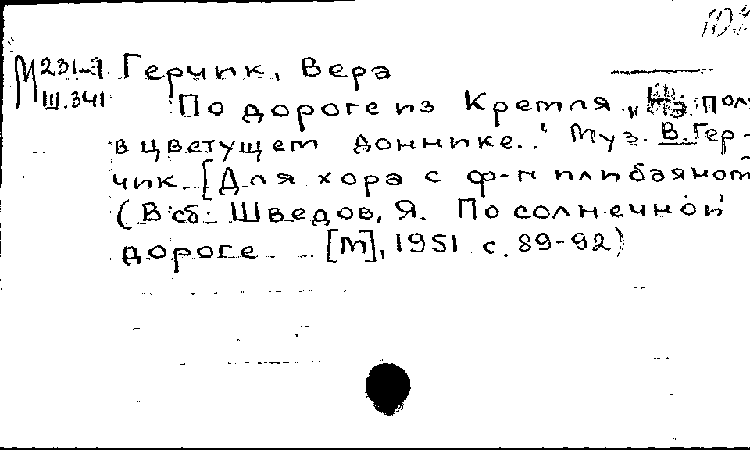 М 231-9 Герчик, Вера
Ш.341
По дороге из Кремля „На пол
в цветущем доннике.." Муз. В. Гер-
чик. [Для хора с ф-п или баяном
(В сб.: Шведов, Я. По солнечной
дороге ... [М], 1951 с. 89-92)